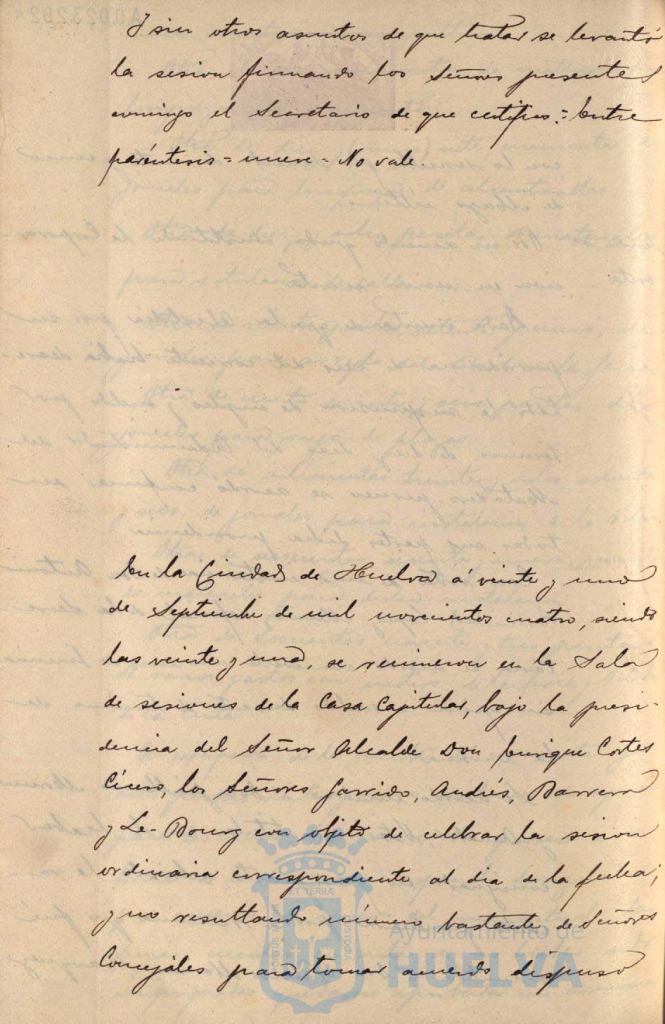 Y sin otros asuntos de que tratar se levantó
la sesion firmando los Señores presentes
conmigo el Secretario de que certifico = Entre
paréntesis = nueve = No vale.
En la Ciudad de Huelva á veinte y uno
de Septiembre de mil novecientos cuatro, siendo
las veinte y una, se reunieron en la Sala
de sesiones de la Casa Capitular, bajo la presi-
dencia del Señor Alcalde Don Enrique Cortes
Cicero, los Señores Garrido, Andrés, Barrera
y Le-Bourg con objeto de celebrar la sesion
ordinaria correspondiente al dia de la fecha;
y no resultando número bastante de Señores
Concejales para tomar acuerdo dispuso
Ayuntamiento de
HUELVA